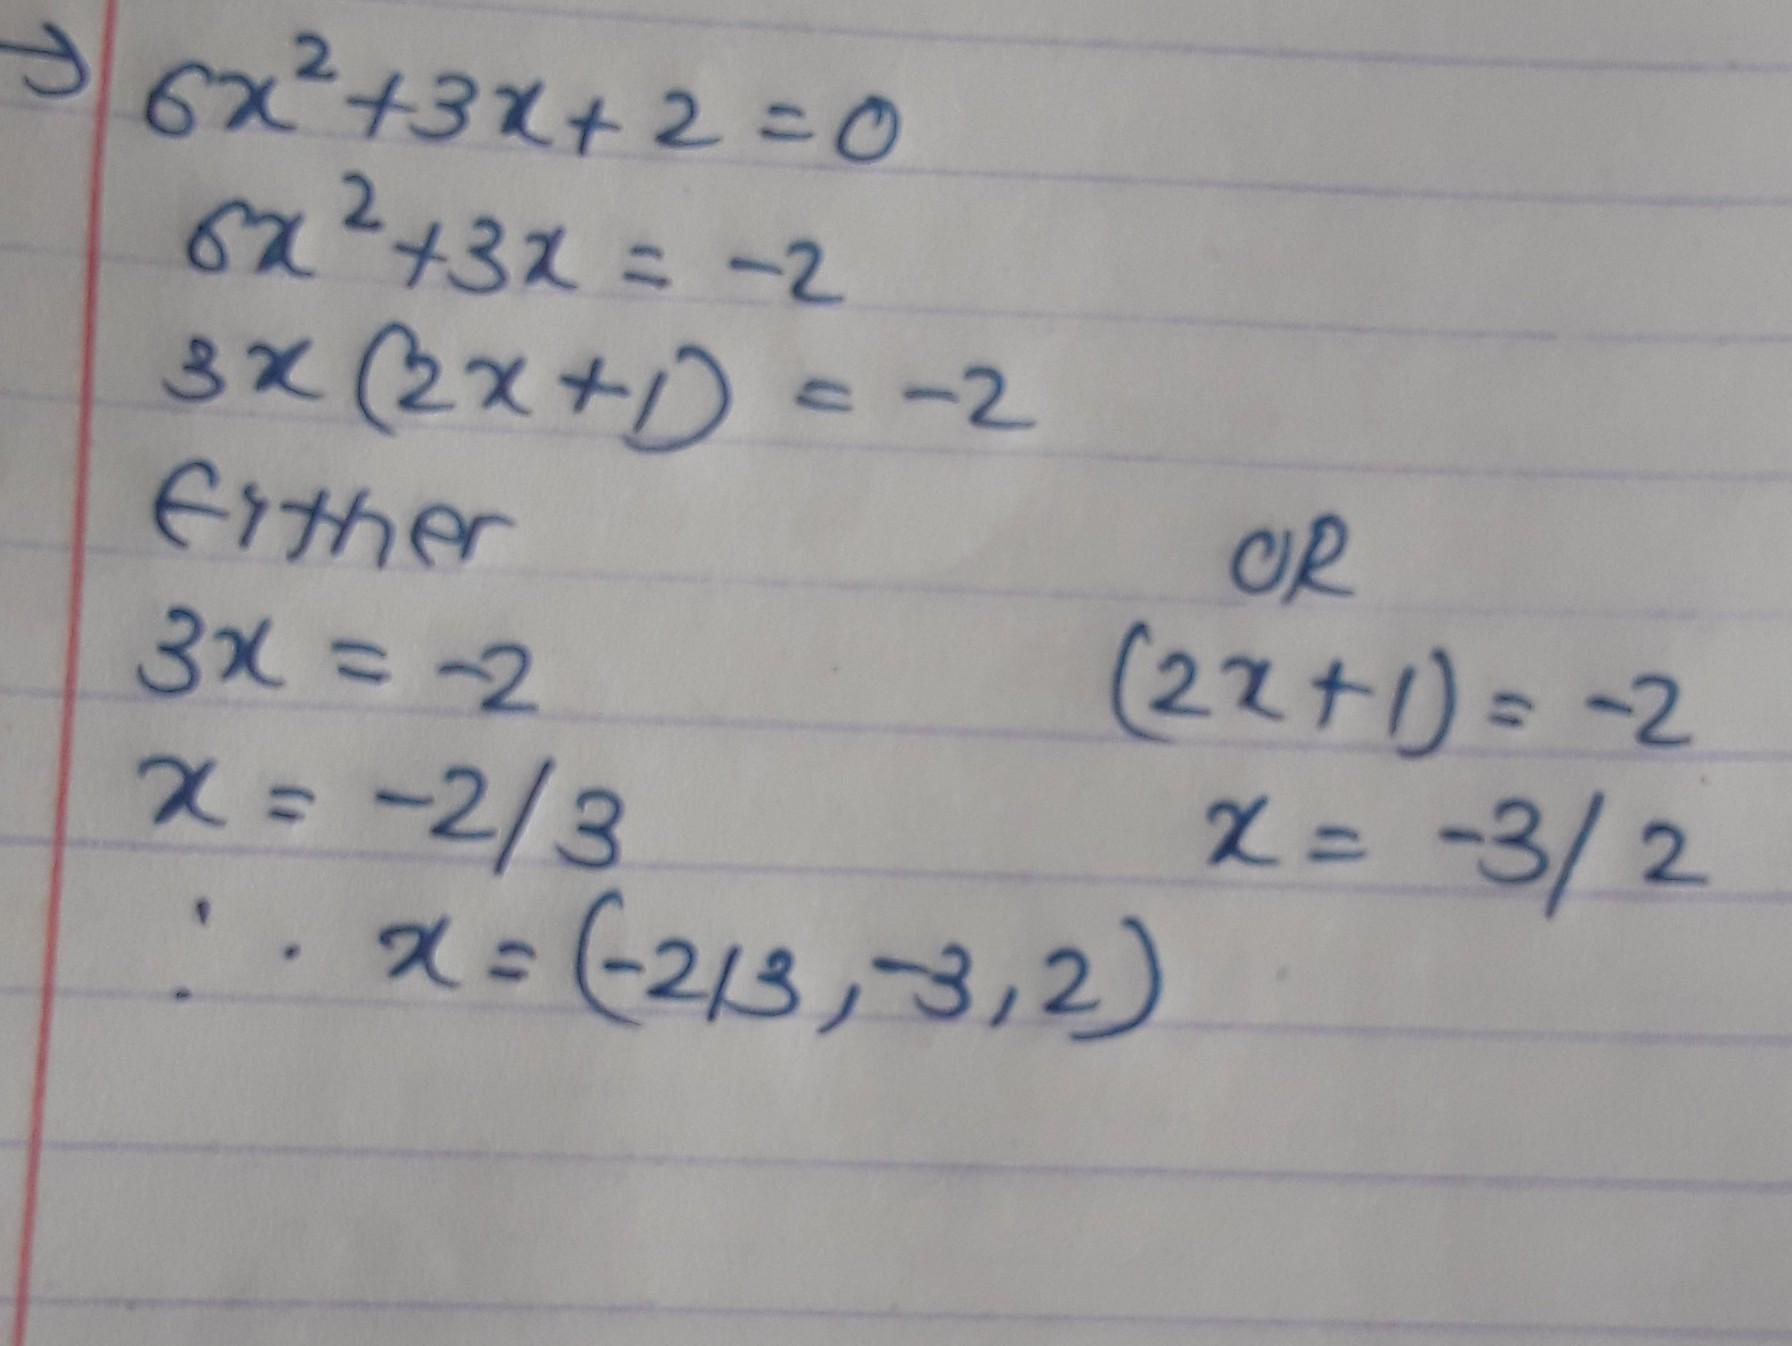 → 6x²+3x+2=0
6x²+3x = -2
3x (2x+1) = -2
Either OR
3x = -2 (2x+1) = -2
x = -2/3 x = -3/2
∴ x = (-2/3, -3, 2)